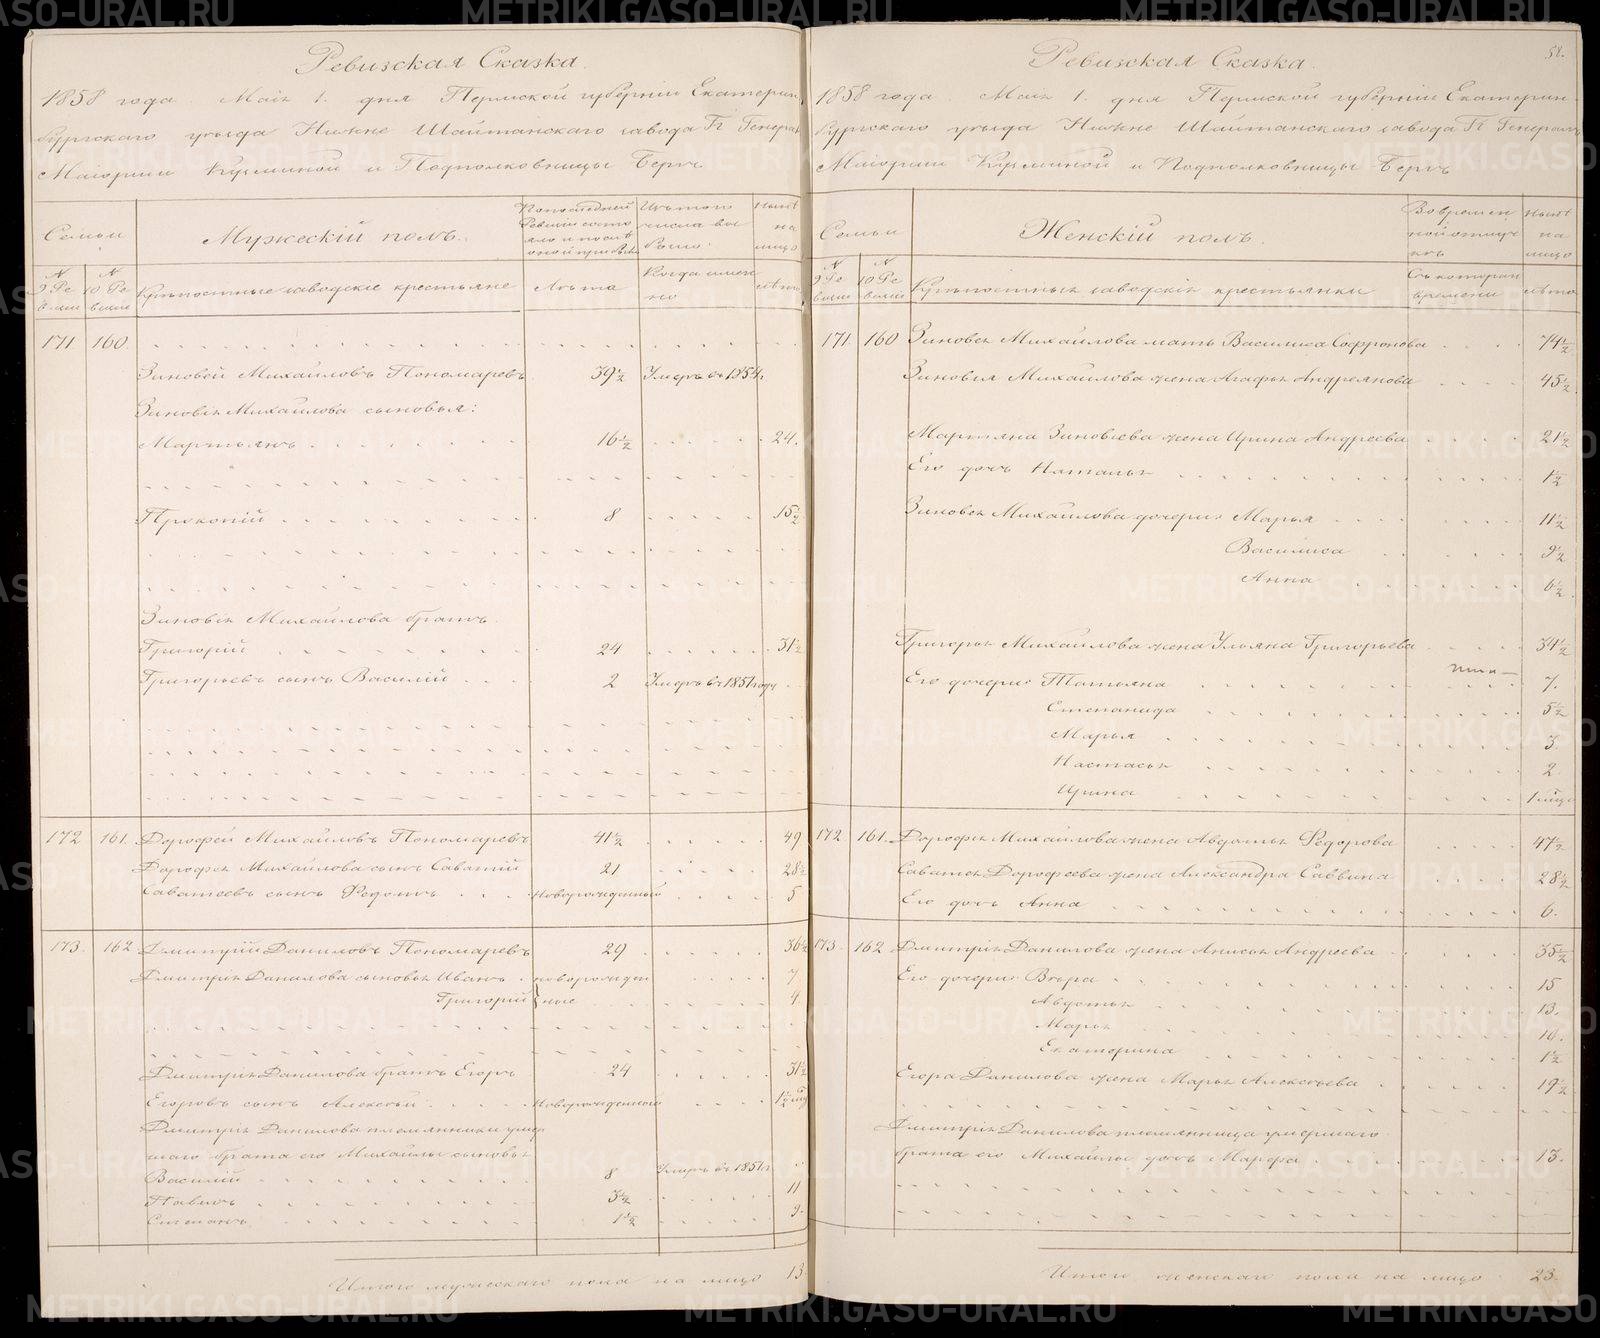 Ревизская Сказка.
1858 года Маія 1. дня Пермской губерніи Екатерин
бургскаго уезда Нижне Шайтанскаго завода Гг Генерал
Маіорши Кузьминой и Подполковницы Бергъ
Семьи
Мужескій полъ.
По последней Ревизіи состояло и после оной прибыло
Изъ того числа выбыло
Ныне на лицо
N 9 Ревизіи
N 10 Ревизіи
Крепостные заводскіе крестьяне
Лета
Когда именно
лета
171 160.
Зиновей Михайловъ Пономаревъ 39½ Умеръ въ 1854.
Зиновья Михайлова сыновья:
Мартьянъ 16½ 24.
Прокопій 8 15½
Зиновья Михайлова братъ
Григорій 24 31½
Григорьевъ сынъ Василій 2 Умеръ въ 1851 году
172 161. Дорофей Михайловъ Пономаревъ 41½ 49
Дорофея Михайлова сынъ Саватій 21 28½
Саватеевъ сынъ новорожденный 5
173. 162. Дмитрій Даниловъ Пономаревъ 29 36½
Дмитрія Данилова сыновья Иванъ новорожден 7
Григорій ные 4.
Дмитрія Данилова братъ Егоръ 24 31½
Егоровъ сынъ Алексей новорожденный 1½
Дмитрія Данилова племянники умер
шаго брата его Михайлы сыновья
Василій 8 Умеръ въ 1851 г
Павилъ 3½ 11
Степанъ 1½ 9.
Итого мужескаго пола на лицо 13
58.
Ревизская Сказка.
1858 года Маія 1. дня Пермской губерніи Екатерин
бургскаго уезда Нижне Шайтанскаго завода Гг Генерал
Маіорши Кузьминой и Подполковницы Бергъ
Семьи
Женскій полъ.
Во временной отлучке
Ныне на лицо
N 9 Ревизіи
N 10 Ревизіи
Крепостныя заводскія крестьянки
Съ котораго времени
лета
171. 160 Зиновья Михайлова мать Василиса Софронова 74½
Зиновья Михайлова жена Агафья Андреянова 45½
Мартьяна Зиновьева жена Ирина Андреева 21½
Его дочь Наталья ½
Зиновья Михайлова дочери: Марья 11½
Василиса 9½
Анна 6½
Григорья Михайлова жена Ульяна Григорьева 34½
Его дочери: Татьяна 7.
Степанида 5½
Марья 3
Настасья 2.
Ирина 1 мца
172 161. Дорофея Михайлова жена Авдотья Федорова 47½
Саватея Дорофеева жена Александра Саввина 28½
Его дочь Анна 6.
173. 162 Дмитрія Данилова жена Анисья Андреева 35½
Его дочери: Вера 15
Авдотья 13.
Марья 10.
Екатерина 1½
Егора Данилова жена Марья Алексеева 19½
Дмитрія Данилова племянница умершаго
брата его Михайлы дочь Марфа 13.
Итого женскаго пола на лицо 23.
METRIKI.GASO-URAL.RU